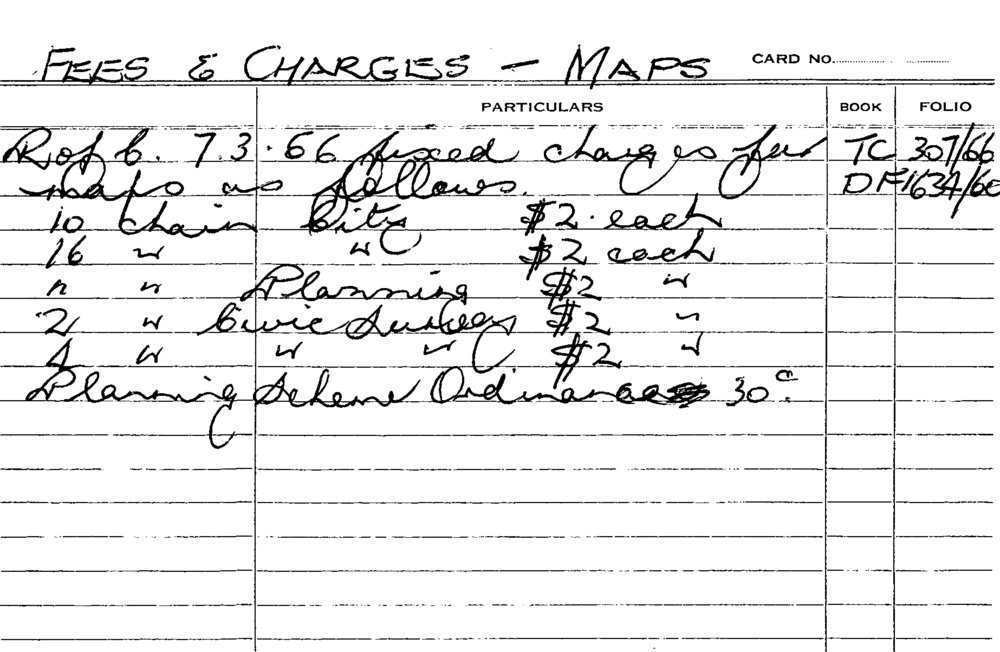 FEES & CHARGES - MAPS CARD NO.
PARTICULARS BOOK FOLIO
R of C. 7.3.66 fixed charges for TC 307/66
maps as follows. DF 1634/60
10 chain City $2. each
16 " " $2 each
" " Planning $2 "
2 " Civic Survey $2 "
4 " " " $2 "
Planning Scheme Ordinance 30c.